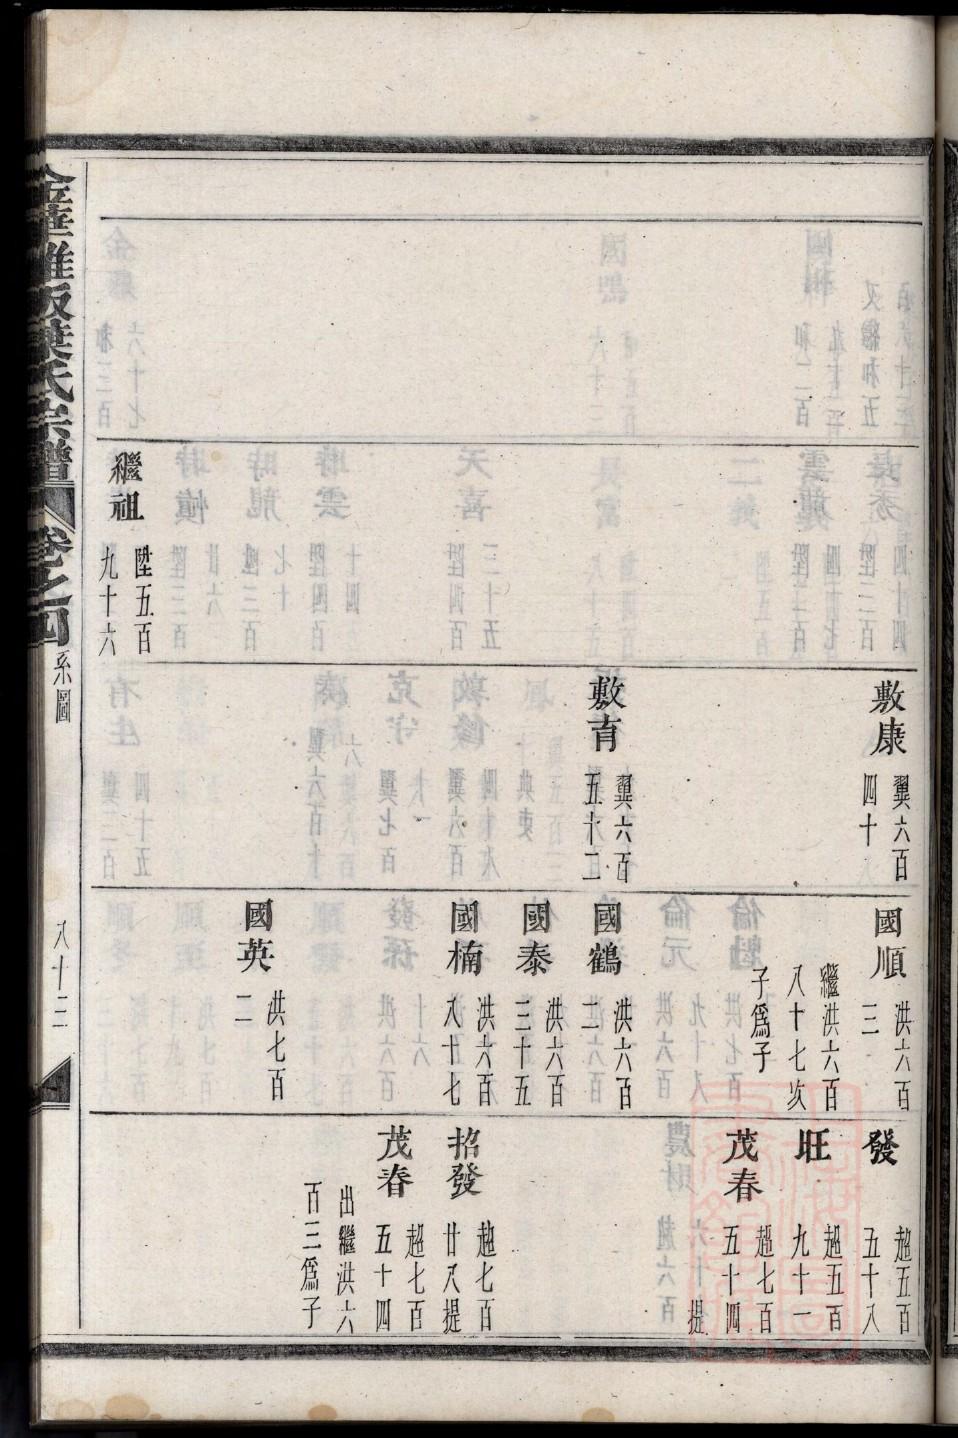 金華雅坂葉氏宗譜 卷之四 系圖 八十三
繼祖 陞五百
九十六
敷康 翼六百
四十
敷育 翼六百
五十二
國順 洪六百
三
繼洪六百
八十七次
子爲子
國鶴 洪六百
二
國泰 洪六百
三十五
國楠 洪六百
八十七
國英 洪七百
二
發 趙五百
五十八
旺 趙五百
九十一
茂春 趙七百
五十四
提
招發 趙七百
廿八提
茂春 趙七百
五十四
出繼洪六
百三爲子